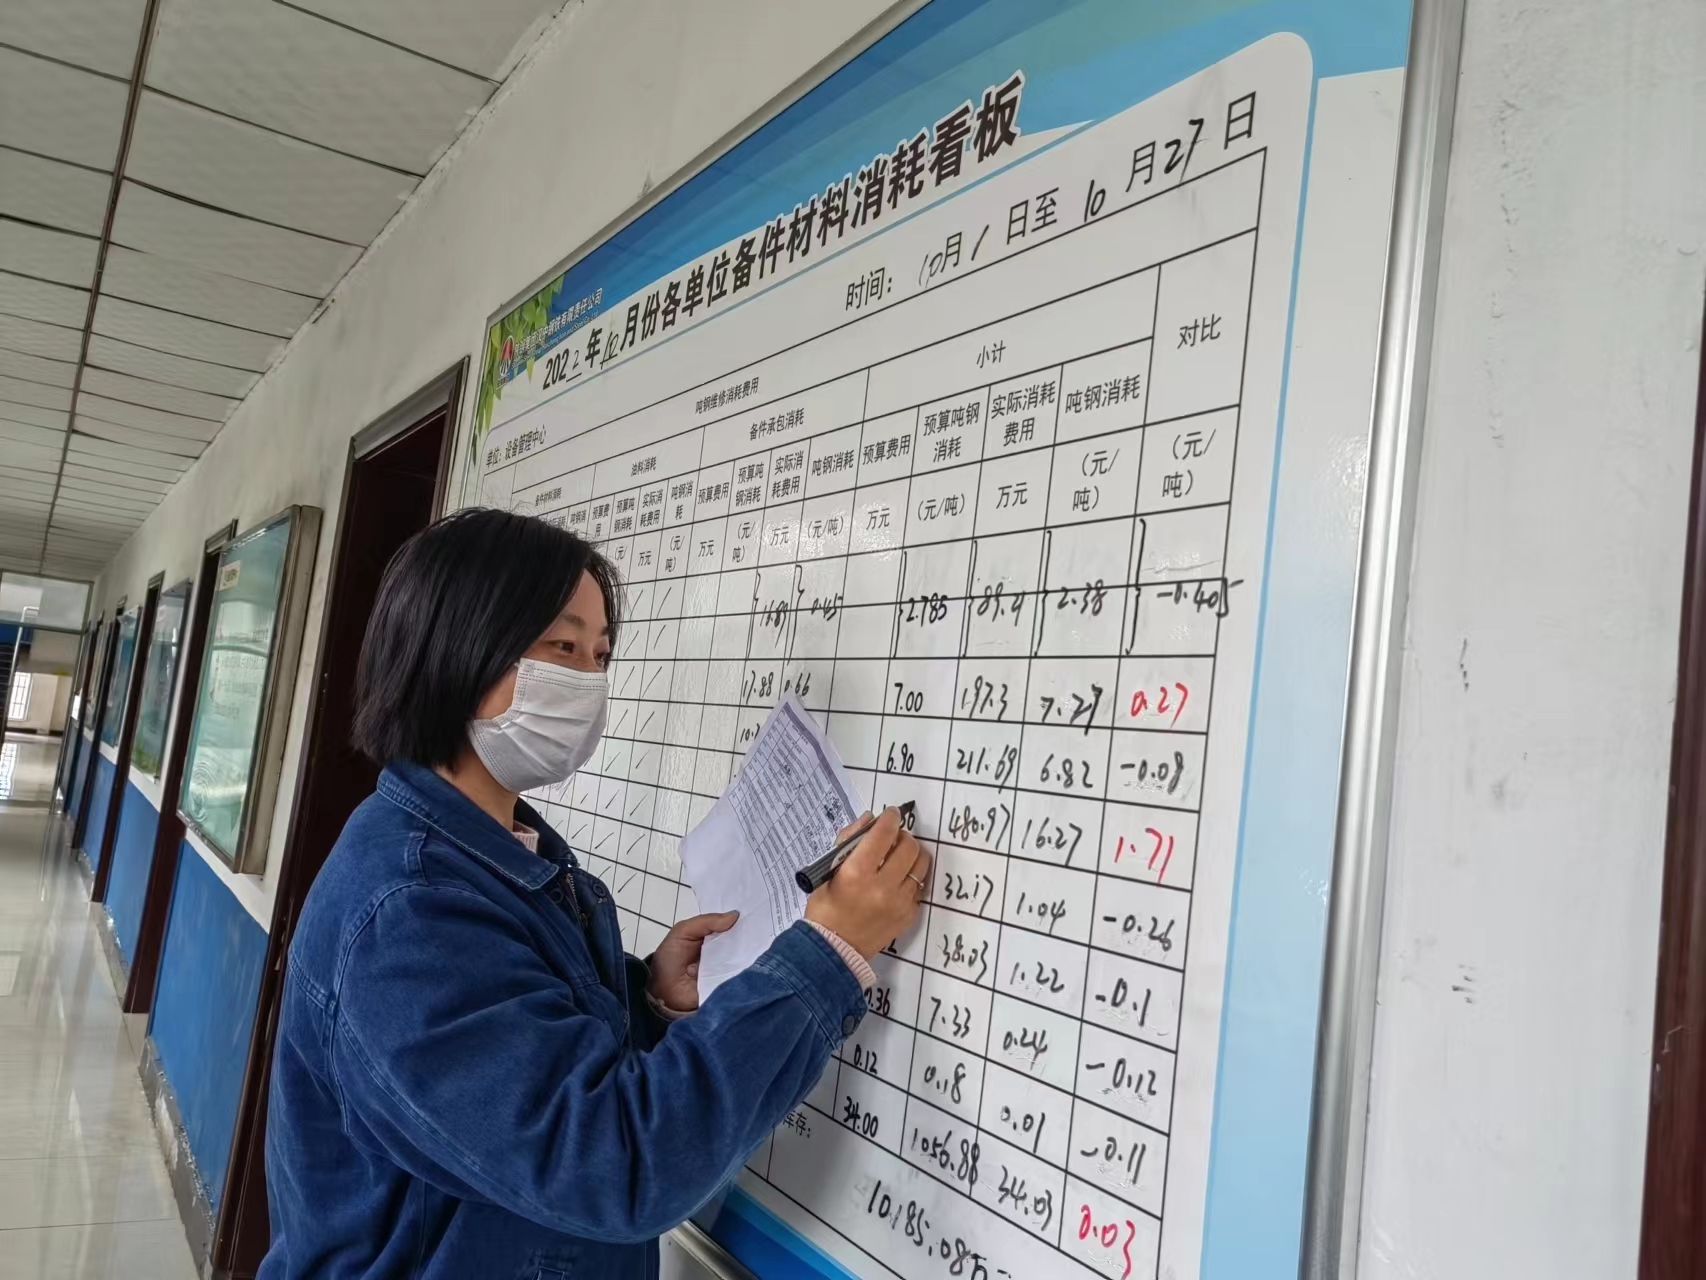 2022年10月份各单位备件材料消耗看板
时间：10月1日至10月27日
单位：设备管理中心
吨钢维修消耗费用
小计
对比
备件材料消耗
油料消耗
备件承包消耗
预算费用 预算吨钢消耗 实际消耗费用 吨钢消耗 预算费用 预算吨钢消耗 实际消耗费用 吨钢消耗 预算费用 预算吨钢消耗 实际消耗费用 吨钢消耗
万元 （元/吨） 万元 （元/吨） 万元 （元/吨） 万元 （元/吨） （元/吨）
0.45 2.785 89.21 2.38 -0.405
17.88 0.66 7.00 197.3 7.27 0.27
6.90 211.69 6.82 -0.08
480.97 16.27 1.71
32.17 1.04 -0.26
38.03 1.22 -0.1
0.36 7.33 0.24 -0.12
0.12 0.18 0.01 -0.11
34.00 1056.88 34.03 0.03
库存： 10185.08万